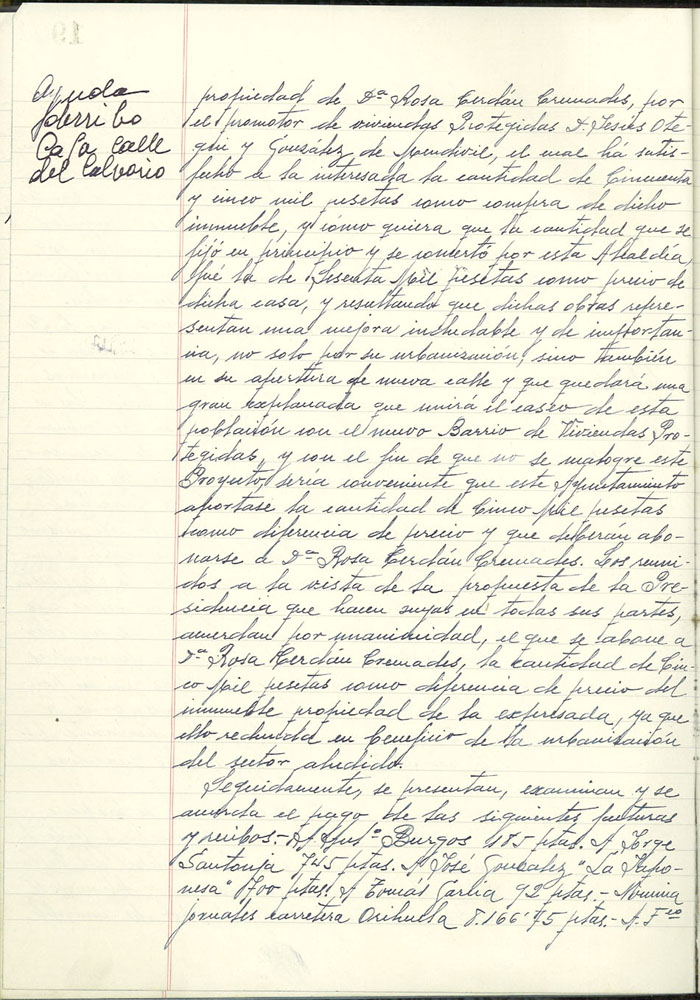 Ayuda
derribo
Casa calle
del Calvario
propiedad de Dª Rosa Cerdán Cremades, por
el promotor de viviendas Protegidas D. Jesús Oté-
gui y González de Mendivil, el cual há satis-
fecho a la interesada la cantidad de Cincuenta
y cinco mil pesetas como compra de dicho
inmueble, y cómo quiera que la cantidad que se
fijó en principio y se concertó por esta Alcaldía,
fué la de Sesenta Mil Pesetas como precio de
dicha casa, y resultando que dichas obras repre-
sentan una mejora indudable y de importan-
cia, no solo por su urbanización, sino también
en su apertura de nueva calle y que quedará una
gran explanada que unirá el casco de esta
población con el nuevo Barrio de Viviendas Pro-
tegidas, y con el fin de que no se malogre este
Proyecto, sería conveniente que este Ayuntamiento
aportase la cantidad de Cinco Mil pesetas
como diferencia de precio y que deberán abo-
narse a Dª Rosa Cerdán Cremades. Los reuni-
dos a la vista de la propuesta de la Pre-
sidencia que hacen suyas en todas sus partes,
acuerdan por unanimidad, el que se abone a
Dª Rosa Cerdán Cremades, la cantidad de Cin-
co Mil pesetas como diferencia de precio del
inmueble propiedad de la expresada, ya que
ello redunda en beneficio de la urbanización
del sector aludido.
Seguidamente, se presentan, examinan y se
acuerda el pago de las siguientes facturas
y recibos.- A Burgos 185 ptas. A Jorge
Santonja 745 ptas. A José González "La Japo-
nesa" 700 ptas. A Tomás García 92 ptas.- Nómina
jornales carretera Orihuela 8.166'75 ptas.- A. Fco